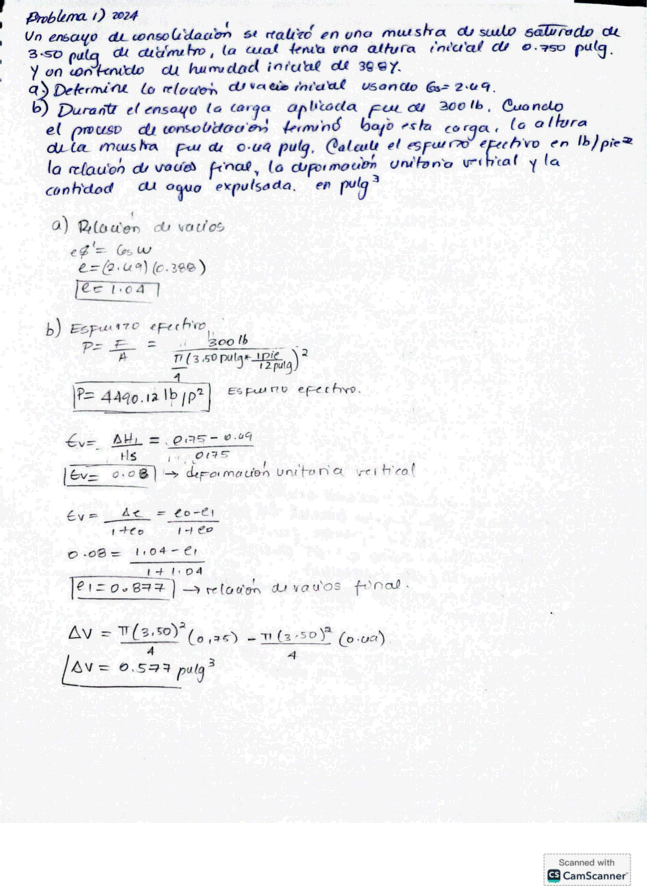 Problema 1) 2024
Un ensayo de consolidación se realizó en una muestra de suelo saturado de
3.50 pulg de diámetro, la cual tenía una altura inicial de 0.750 pulg.
y un contenido de humedad inicial de 38.8%.
a) Determine la relación de vacío inicial usando Gs = 2.69.
b) Durante el ensayo la carga aplicada fue de 300 lb. Cuando
el proceso de consolidación terminó bajo esta carga, la altura
de la muestra fue de 0.69 pulg. Calcule el esfuerzo efectivo en lb/pie²
la relación de vacíos final, la deformación unitaria vertical y la
cantidad de agua expulsada. en pulg³
a) Relación de vacíos
e = Gs w
e = (2.69)(0.388)
e = 1.04
b) Esfuerzo efectivo
P = F/A = 300 lb / π/4 (3.50 pulg * 1 pie/12 pulg)²
P = 4490.12 lb/p² Esfuerzo efectivo.
Ev = ΔH1/Hs = 0.75 - 0.69 / 0.75
Ev = 0.08 → deformación unitaria vertical
Ev = Δe/1+e0 = e0-e1/1+e0
0.08 = 1.04 - e1 / 1 + 1.04
e1 = 0.877 → relación de vacíos final.
ΔV = π(3.50)²/4 (0.75) - π(3.50)²/4 (0.69)
ΔV = 0.577 pulg³
Scanned with
CS CamScanner